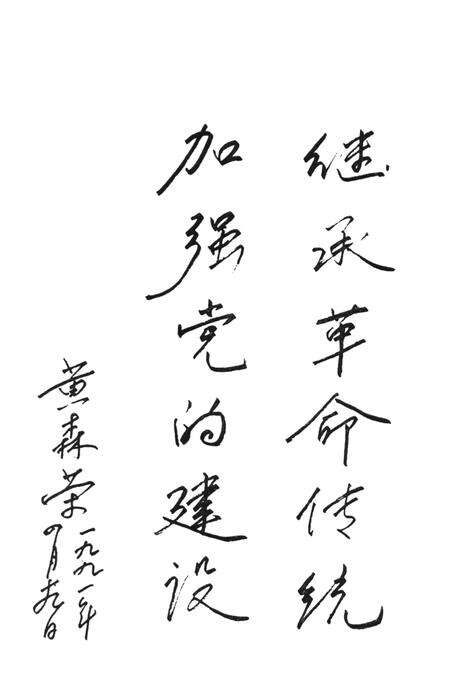 继承革命传统
加强党的建设
黄森荣
一九九一年
四月九日